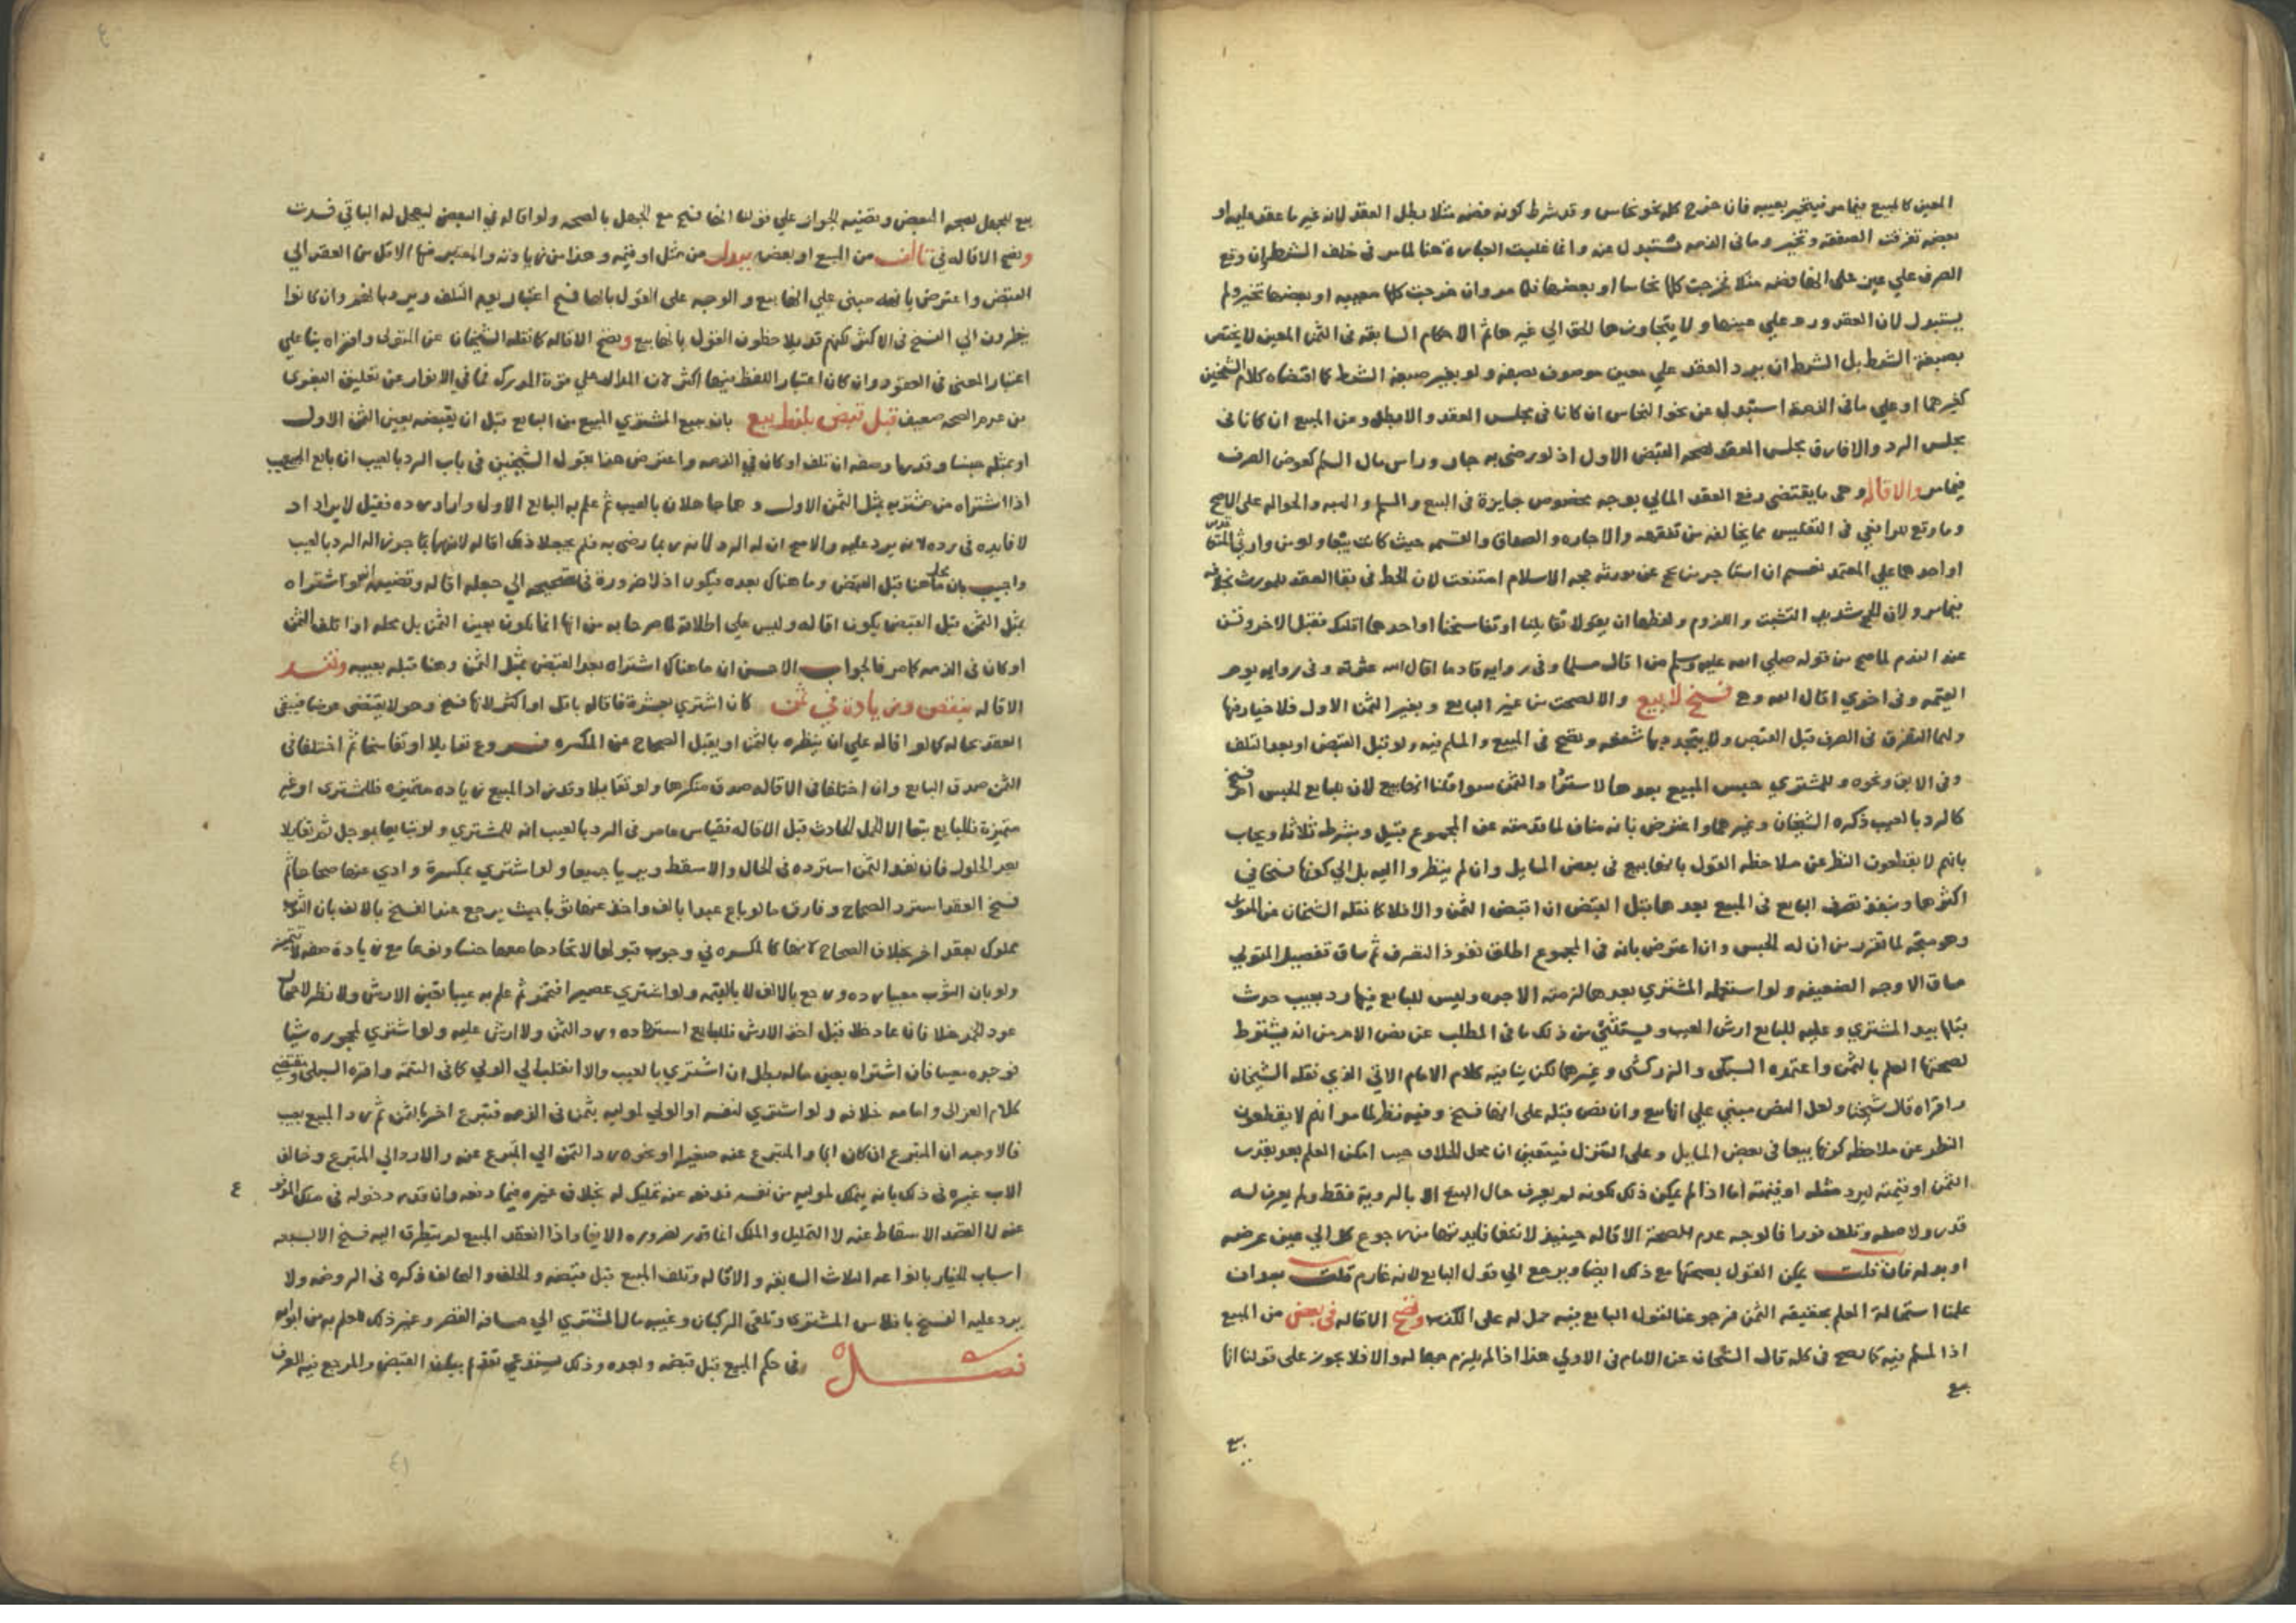 المعين كالمبيع فيمامر فيتخير بعيبه فان خرج كله نحو نحاس وقد شرط كونه فضه مثلا بطل العقد لانه غير ما عقد عليه او
بعضه تفرقت الصفقه وتخير وما في الذمه يستبدل عنه وانما غليت العباره هنا لمامر في خلف الشرط ان وقع
الصرف علي عين على انها فضه مثلا فخرجت كلها نحاسا او بعضها فكما مر وان خرجت كلها معيبه او بعضها تخير ولم
يستبدل لان العقد ورد علي عينها ولا يتجاوزها الحق الي غيرها ثم الاحكام السابقه في الثمن المعين لا يختص
بصيغة الشرط بل الشرط ان يرد العقد علي معين موصوف بصفه ولو بغير صيغة الشرط كما اقتضاه كلام الشيخين
كغيرهما او علي ما في الذمة استبدل عن نحو النحاس ان كانا في مجلس العقد والا بطل وعن المبيع ان كانا في
مجلس الرد والا فارق مجلس العقد لصحه القبض الاول اذ لو رضي به جاز وراس مال السلم كعوض الصرف
فيمامر والاقاله وهي ما يقتضي رفع العقد المالي بوجه مخصوص جايزة في البيع والسلم والهبه والحواله على الاصح
وما وقع للرافعي في التفليس مما يخالفه من تفقهه والاجاره والصداق والقسمه حيث كانت بيعا ولو من وارثي المتعاقدين
او احدهما علي المعتمد نعم ان استاجر من يحج عن مورثه حجه الاسلام امتنعت لان الحظ في بقا العقد للمورث بخلافه
فيمامر ولان للمرشد به التثبت واللزوم ولفظها ان يقولا تقايلنا او تفاسخنا او احدهما اقلتك فيقبل الاخر وتسن
عند الندم لما صح من قوله صلي الله عليه وسلم من اقال مسلما وفي روايه نادما اقال الله عثرته وفي روايه يوم
القيمه وفي اخري اقال الله وهي فسخ لا بيع والا لصحت من غير البايع وبغير الثمن الاول فلا خيار فيها
ولهما التفرق في الصرف قبل القبض ولا يتجدد بها شفعه وتصح في المبيع والمسلم فيه ولو قبل القبض او بعد التلف
وفي الابق ونحوه وللمشتري حبس المبيع بعدها لاسترداد الثمن سوا قلنا انها بيع لان للبايع الحبس ام فسخ
كالرد بالعيب ذكره الشيخان وغيرهما واعترض بانه مناف لما قدمته عن المجموع قبيل وبشرطه ثلاثا ويجاب
بانهم لا يقطعون النظر عن ملاحظه القول بانها بيع في بعض المسايل وان لم ينظروا اليه بل الي كونها فسخا في
اكثرها وينفذ تصرف البايع في المبيع بعدها قبل القبض ان اقبض الثمن والا فلا كما نقله الشيخان عن المتولي
وهو متجه لما تقرر من ان له الحبس وان اعترض بانه في المجموع اطلق نفوذ التصرف ثم ساق تفصيل المتولي
مساق الاوجه الضعيفه ولو استعمله المشتري بعدها لزمته الاجره وليس للبايع فيها رد بعيب حدث
قبلها بيد المشتري وعليه للبايع ارش العيب ويستثني من ذلك ما في المطلب عن نص الام من انه يشترط
لصحتها العلم بالثمن واعتمده السبكي والزركشي وغيرهما لكن ينافيه كلام الامام الاتي الذي نقله الشيخان
واقراه قال شيخنا ولعل النص مبني علي انها بيع وان نص قبله على انها فسخ وفيه نظر لما مر انهم لا يقطعون
النظر عن ملاحظه كونها بيعا في بعض المسايل وعلى التنزل فيتعين ان محل الخلاف حيث امكن العلم بعد بقدر
الثمن او قيمته ليرد مثله او قيمته اما اذا لم يمكن ذلك لكونه لم يعرف حال البيع الا بالروية فقط ولم يعرف له
قدر ولا صفه وتلف فورا فالوجه عدم الصحة الاقاله حينيذ لانتفا فايدتها من رجوع كل الي عين عرضه
او بدله فان قلت يمكن القول بصحتها مع ذلك ايضا ويرجع الي قول البايع لانه غارم قلت بعد ان
علمنا استحالة العلم بحقيقه الثمن فرجوعنا لقول البايع فيه حمل له على الكذب وتصح الاقاله في بعض من المبيع
اذا لمسلم فيه كما تصح في كله قال الشيخان عن الامام في الاولي هذا اذا لم يلزم جهاله والا فلا يجوز على قولنا انها
بيع
بيع
بيع للجهل بصحه البعض وقضيته الجواز علي قولنا انها فسخ مع الجهل بالصحه ولو اقاله في البعض ليعجل له الباقي فسدت
وتصح الاقاله في تالف من المبيع او بعض ببدل من مثل او قيمه وهذا من زيادته والمعتبر فيها الاقل من العقد الي
القبض واعترض بانه مبني علي انها بيع والوجه على القول بانها فسخ اعتبار يوم التلف
ينظرون الي الفسخ في الاكثر لكنهم قد يلاحظون القول بانها بيع وتصح الاقاله كما نقله الشيخان عن المتولي واقراه بنا علي
اعتبار المعنى في العقود وان كان اعتبار اللفظ فيها اكثر لان المدار علي قوة المدرك فما في الانوار عن تعليق البغوي
من عدم الصحه ضعيف قبل قبض بلفظ بيع بان يبيع المشتري المبيع من البايع قبل ان يقبضه بعين الثمن الاول
او بمثله جنسا وقدرا وصفه ان تلف او كان في الذمه واعترض هذا بقول الشيخين في باب الرد بالعيب ان بايع المعيب
اذا اشتراه من مشتريه بمثل الثمن الاول وهما جاهلان بالعيب ثم علم به البايع الاول واراد رده فقيل لا يراد اد
لا فايده في رده لانه يرد عليه والاصح ان له الرد لانه ربما رضي به فلم يجعلا ذلك اقاله لانهما انما جوزا له الرد بالعيب
واجيب بان محل ما هنا قبل القبض وما هناك بعده فيكون اذ لا ضرورة في تصحيحه الي جعله اقاله وقضيته انه لو اشتراه
بمثل الثمن قبل القبض يكون اقاله وليس علي اطلاقه لما صرحا به من انها انما تكون بعين الثمن بل محله اذا تلف الثمن
او كان في الذمه كما مر فالجواب الاحسن ان ما هناك اشتراه بعد القبض بمثل الثمن وهنا قبله بعينه وتفسد
الاقاله بنقص وزيادة في ثمن كان اشتري بعشرة فاقاله باقل او اكثر لانها فسخ وهو لا يقتضي عوضا فيبقى
العقد بحاله كما لو اقاله علي ان ينظره بالثمن او يقبل الصحاح عن المكسره فروع تقايلا او تفاسخا ثم اختلفا في
الثمن صدق البايع وان اختلفا في الاقاله صدق منكرها ولو تقايلا وقد زاد المبيع زياده متميزه فللمشتري او غير
متميزة فللبايع تبعا الا الحمل الحادث قبل الاقاله فقياس ما مر في الرد بالعيب انه للمشتري ولو تبايعا بموجل ثم تقايلا
بعد الحلول فان نقد الثمن استرده في الحال والا سقط وبريا جميعا ولو اشتري بمكسرة وادي عنها صحاحا ثم
فسخ العقد استرد الصحاح وفارق ما لو باع عبدا بالف واخذ عنها ثوبا حيث يرجع عند الفسخ بالالف بان الثوب
مملوك بعقد اخر بخلاف الصحاح لانها كالمكسره في وجوب قبولها لاتحادها معها جنسا ونوعا مع زيادة صفه لا تتميز
ولو بان الثوب معيبا رده ورجع بالالف لا بالقيمه ولو اشتري عصيرا فتخمر ثم علم به عيبا تعين الارش ولا نظر لاحتمال
عود الخمر خلا فان عاد خلا قبل اخذ الارش فللبايع استرداده ورد الثمن ولا ارش عليه ولو اشتري لمحجوره شيا
فوجده معيبا فان اشتراه بعين ماله بطل ان اشتري بالعيب والا انقلب الي الولي كما في التتمه واقره السبكي ومقتضى
كلام الغزالي وامامه خلافه ولو اشتري لنفسه او الولي لموليه بثمن في الذمه فتبرع اخر بالثمن ثم رد المبيع بعيب
فالاوجه ان المتبرع ان كان ابا والمتبرع عنه صغيرا او نحوه رد الثمن الي المتبرع عنه والا رد الي المتبرع وخالف
الاب غيره في ذلك بانه يتملك لموليه من نفسه فدفعه عنه تمليك له بخلاف غيره فيما دفعه وان قدر دخوله في ملك المودى
عنه لان القصد الاسقاط عنه لا التمليك والملك انما قدر لضروره الايفا واذا انعقد المبيع لم يتطرق اليه فسخ الا بسبعه
اسباب الخيار بانواعه الثلاث السابقه والاقاله وتلف المبيع قبل قبضه والخلف والتحالف ذكره في الروضه ولا
يرد عليه الفسخ بافلاس المشتري وتلقي الركبان وغيبه مال المشتري الي مسافه القصر وغير ذلك للعلم به من ابوابه
فصل في حكم المبيع قبل قبضه وبعده وذلك يستدعي تقدم بيان القبض والمرجع فيه العرف
٤
٤
٤١